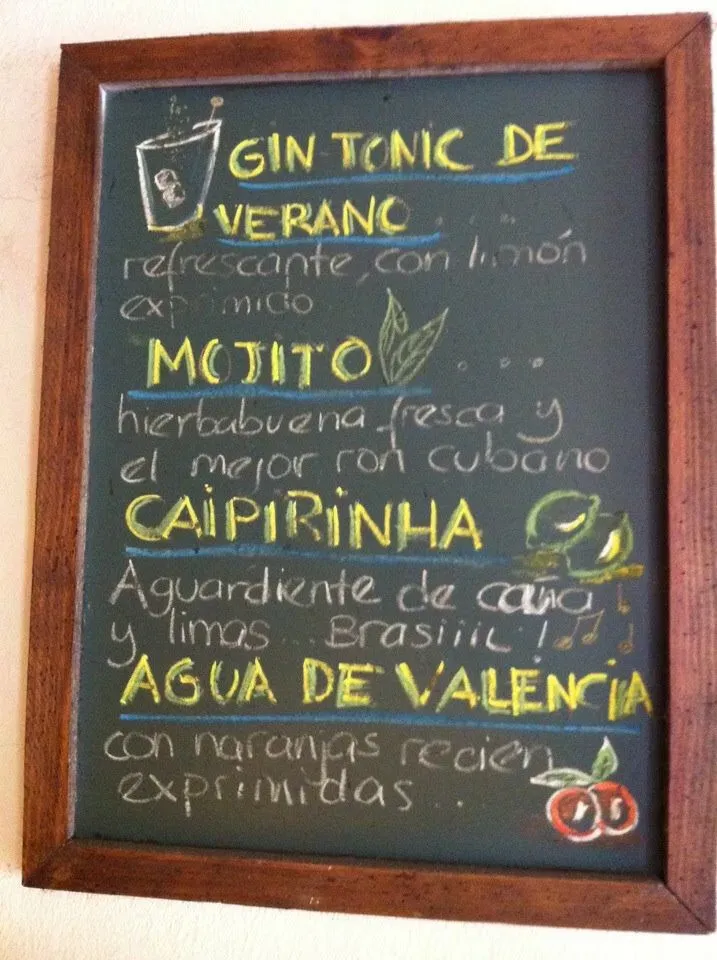 GIN TONIC DE
VERANO....
refrescante, con limón
exprimido
MOJITO....
hierbabuena fresca y
el mejor ron cubano
CAIPIRINHA
Aguardiente de caña
y limas... BRASiiiL!
AGUA DE VALENCIA
con naranjas recien
exprimidas...